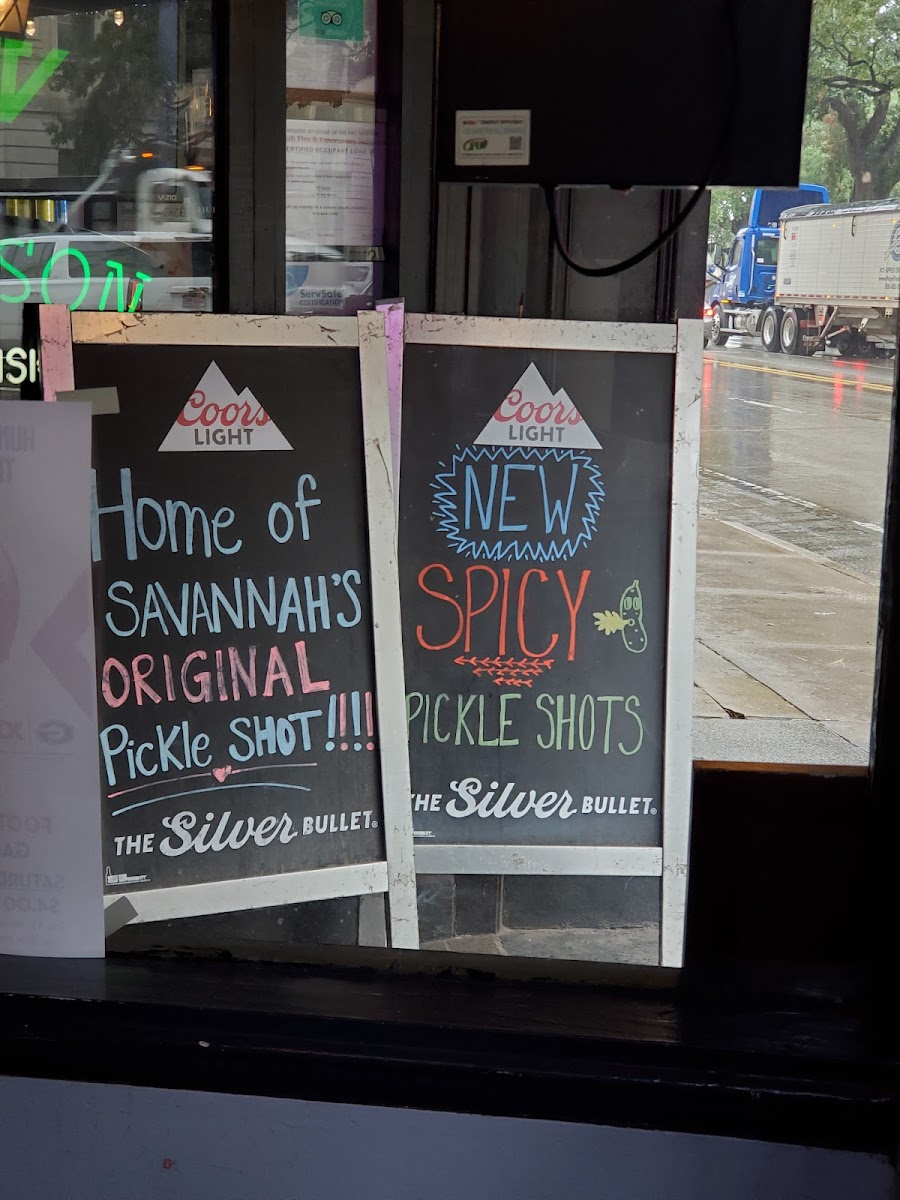 Coors
LIGHT
Home of
SAVANNAH'S
ORIGINAL
Pickle SHOT!!!!
THE Silver BULLET
Coors
LIGHT
NEW
SPICY
PICKLE SHOTS
THE Silver BULLET
ServSafe
VIZIO
SON